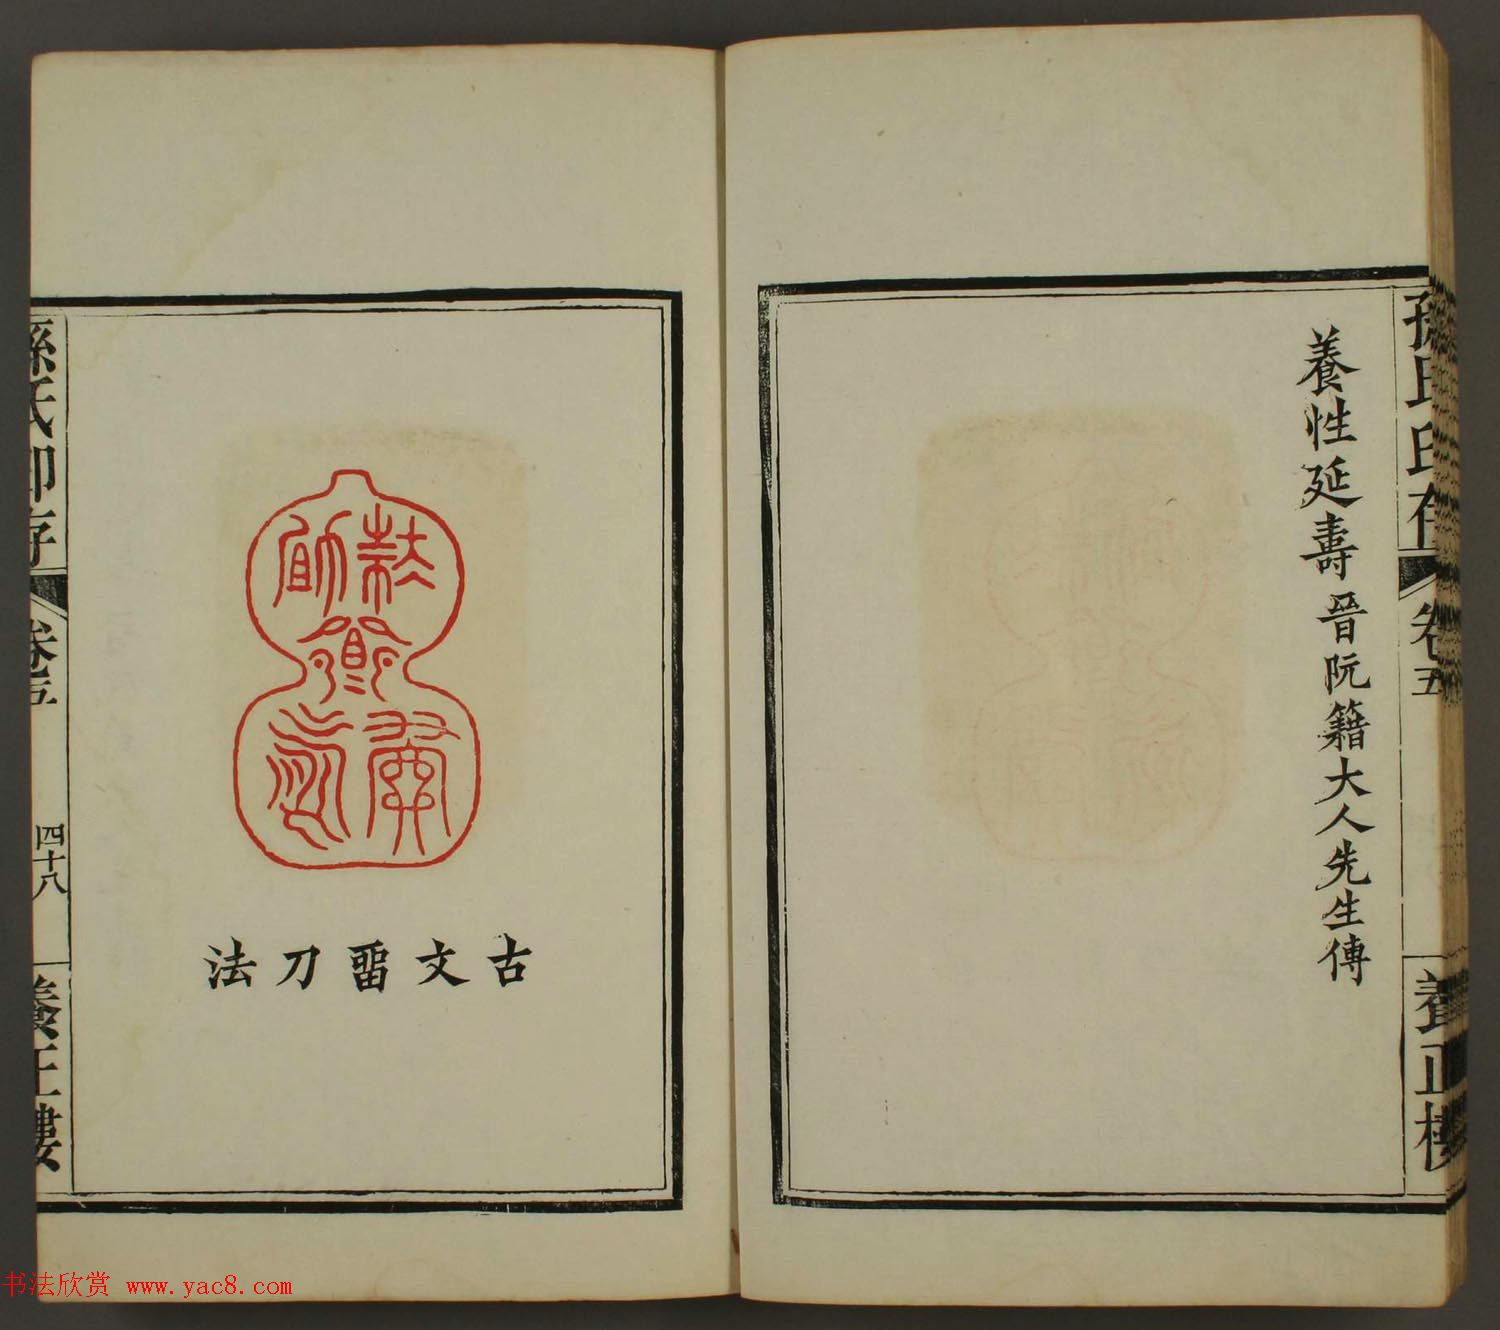 養性延壽 晉阮籍大人先生傳
孫氏印存
卷五
養正樓
古文畱刀法
孫氏印存
卷五
四十八
養正樓
书法欣赏 www.yac8.com